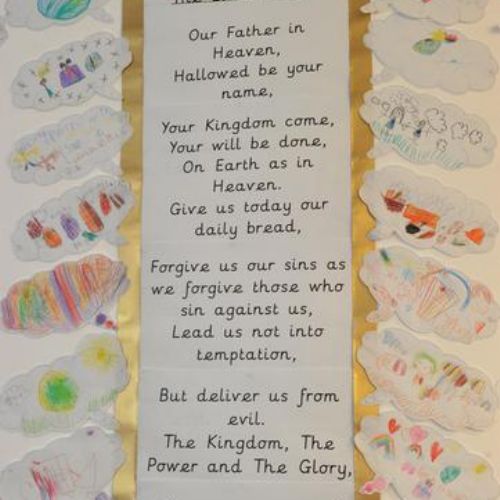 Our Father in
Heaven,
Hallowed be your
name,
Your Kingdom come,
Your will be done,
On Earth as in
Heaven.
Give us today our
daily bread,
Forgive us our sins as
we forgive those who
sin against us,
Lead us not into
temptation,
But deliver us from
evil.
The Kingdom, The
Power and The Glory,